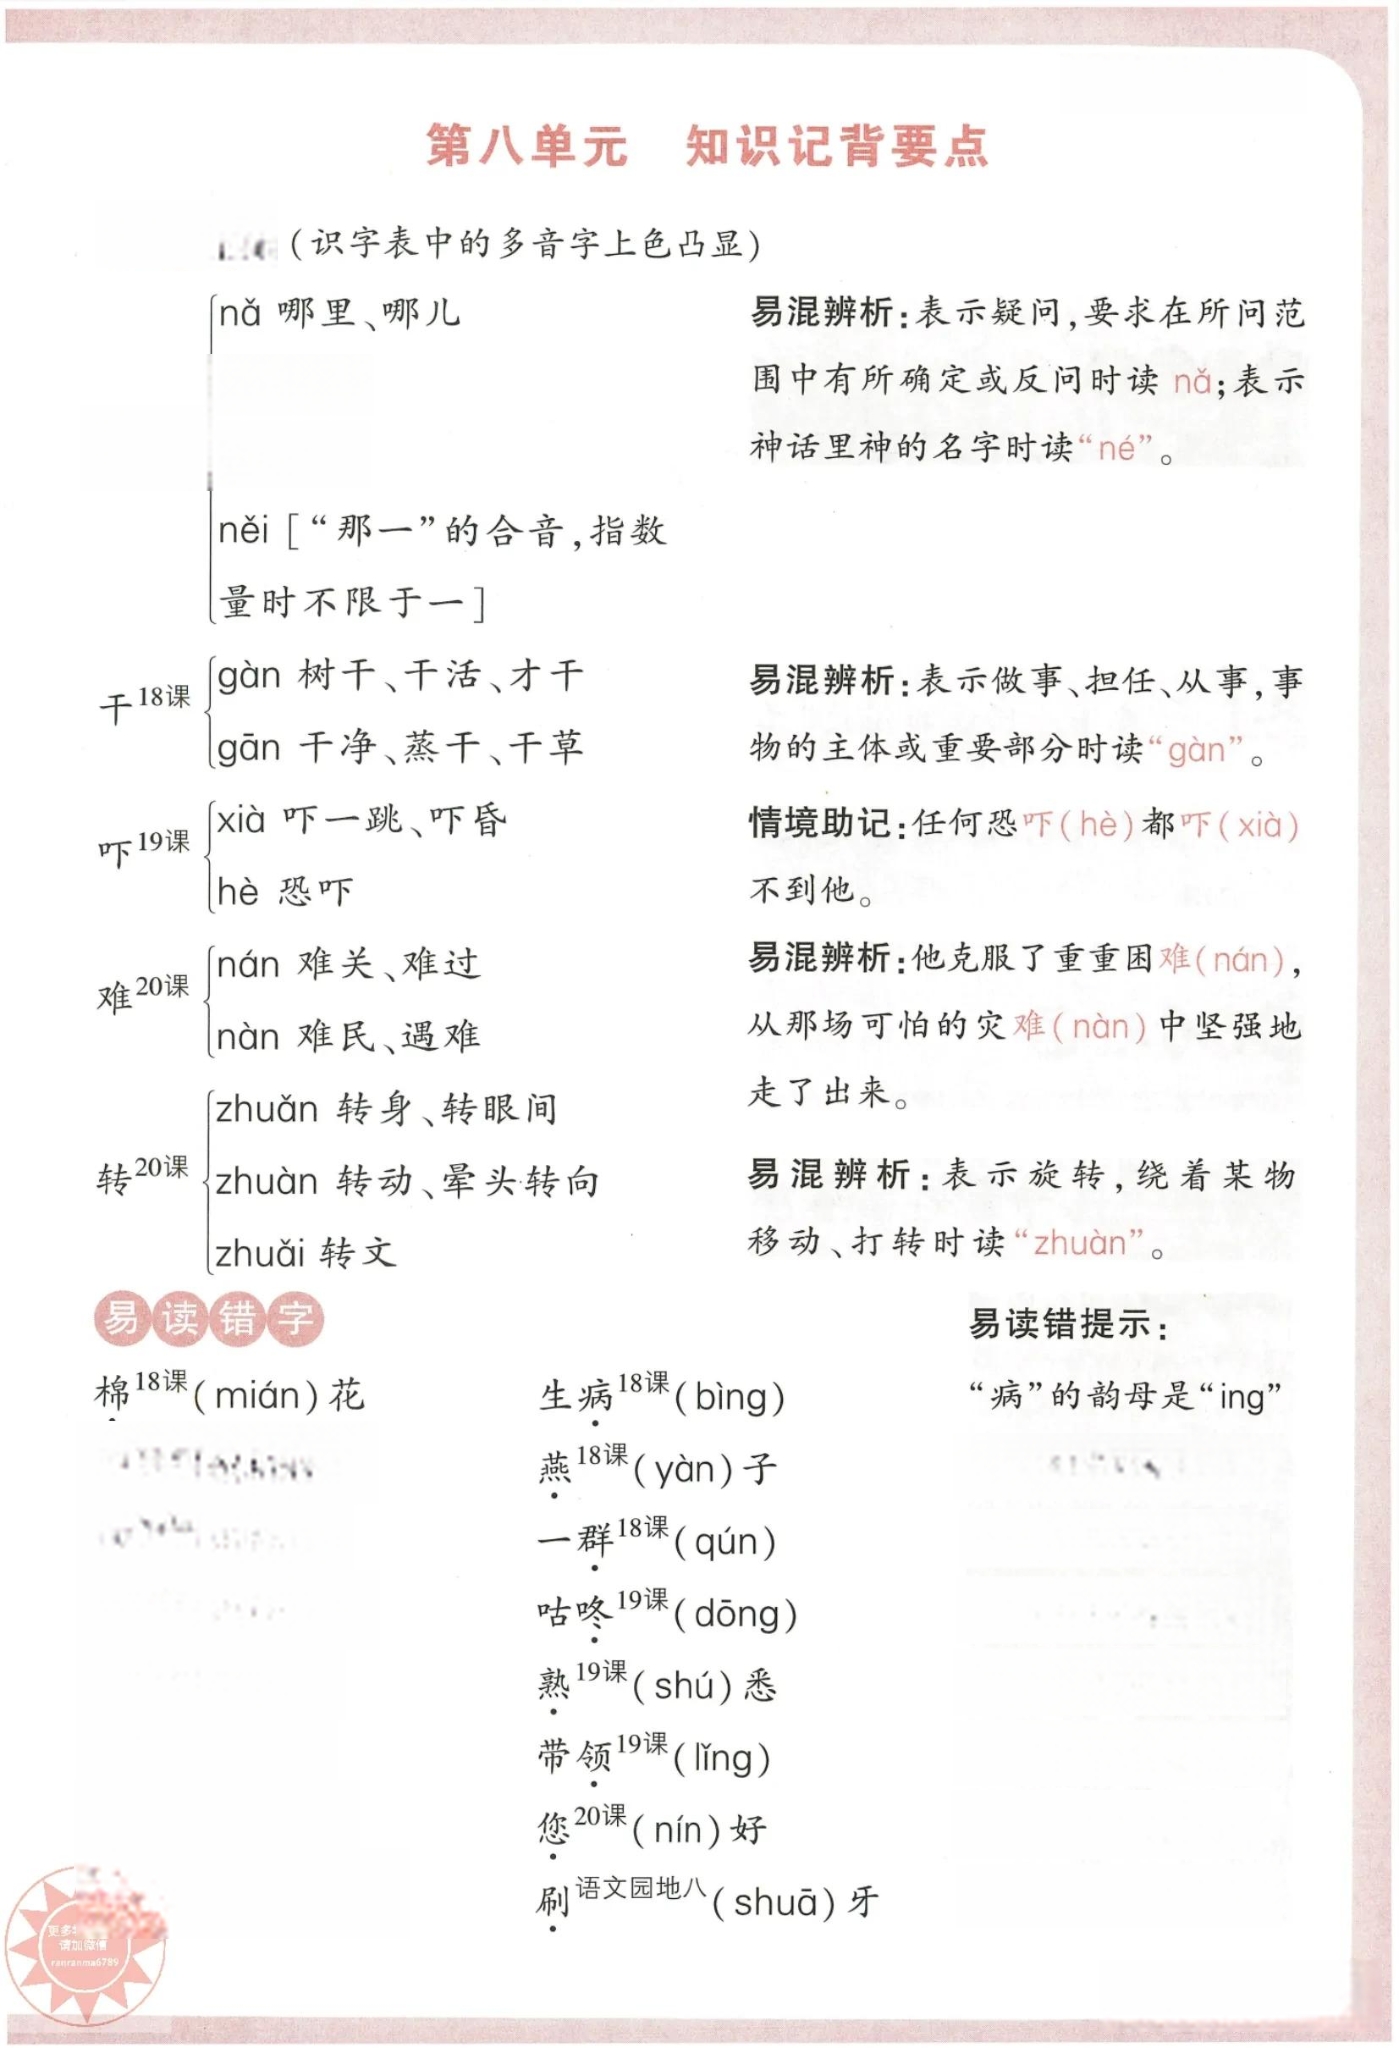 第八单元 知识记背要点
(识字表中的多音字上色凸显)
nǎ 哪里、哪儿
易混辨析:表示疑问,要求在所问范
围中有所确定或反问时读 nǎ;表示
神话里神的名字时读“né”。
něi [“那一”的合音,指数
量时不限于一]
干18课
gàn 树干、干活、才干
gān 干净、蒸干、干草
易混辨析:表示做事、担任、从事,事
物的主体或重要部分时读“gàn”。
吓19课
xià 吓一跳、吓昏
hè 恐吓
情境助记:任何恐吓(hè)都吓(xià)
不到他。
难20课
nán 难关、难过
nàn 难民、遇难
易混辨析:他克服了重重困难(nán),
从那场可怕的灾难(nàn)中坚强地
走了出来。
转20课
zhuǎn 转身、转眼间
zhuàn 转动、晕头转向
zhuǎi 转文
易混辨析:表示旋转,绕着某物
移动、打转时读“zhuàn”。
易读错字
易读错提示:
棉18课(mián)花
生病18课(bìng)
“病”的韵母是“ing”
燕18课(yàn)子
一群18课(qún)
咕咚19课(dōng)
熟19课(shú)悉
带领19课(lǐng)
您20课(nín)好
刷语文园地八(shuā)牙
更多
请加微信
ranranma6789